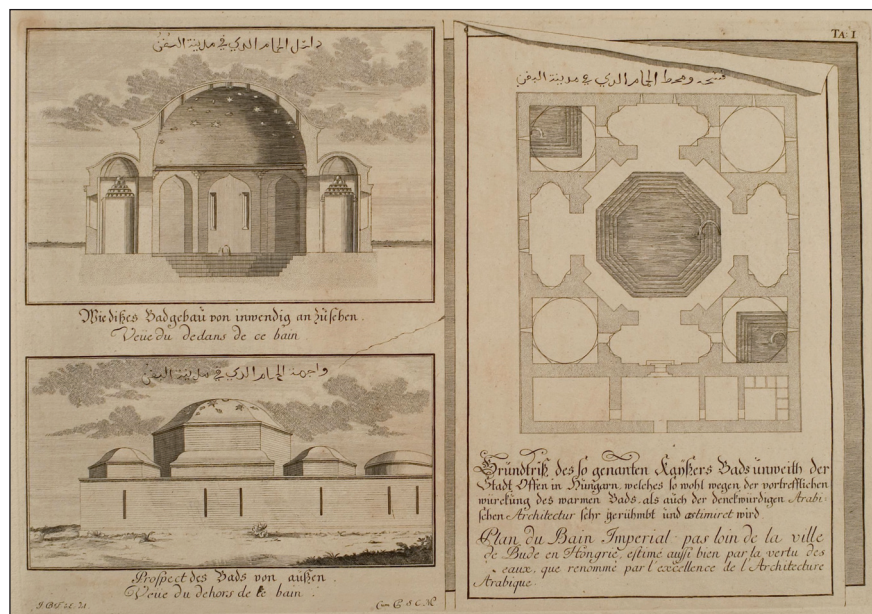 داخل الحمام الذي في مدينة البفن
Wie dißes Badgebaü von inwendig an züsehen.
Veüe du dedans de ce bain
واجهة الحمام الذي في مدينة البفن
Prospect des Bads von außen.
Veue du dehors de ce bain.
TA: I
ومحط الحمام الذي في مدينة البفن
Gründriß des so genanten Kaÿsers Bads ünweith der
Stadt Offen in Hüngarn, welches so wohl wegen der vortrefflichen
würckung des warmen Bads, als auch der denckwürdigen Arabi-
schen Architectur sehr gerühmbt und æstimiret wird.
Plan du Bain Imperial pas loin de la ville
de Bude en Hongrie, estimé aussi bien par la vertu des
eaux, que renommé par l'excellence de l'Architecture
Arabique.